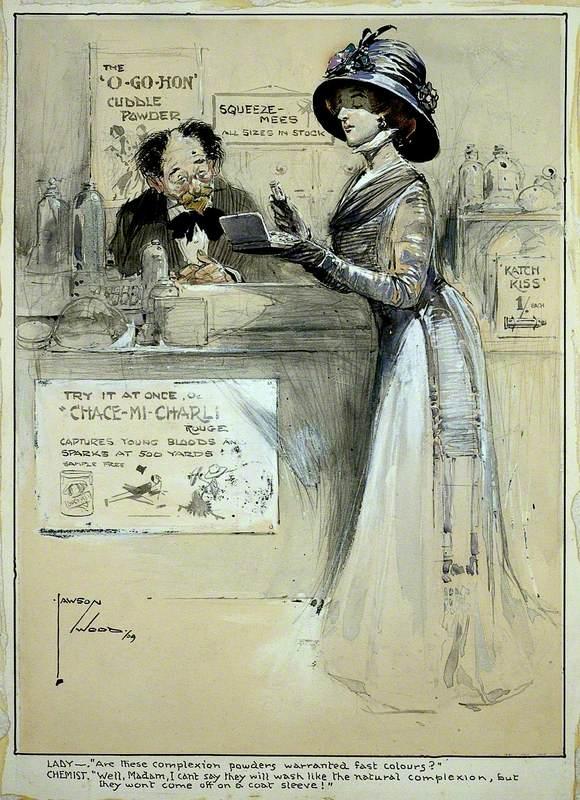 THE
'O-GO-HON'
CUDDLE
POWDER
SQUEEZE-
MEES
ALL SIZES IN STOCK
'KATCH
KISS'
1/- EACH
TRY IT AT ONCE,
"CHACE-MI-CHARLI
ROUGE
CAPTURES YOUNG BLOODS AN
SPARKS AT 500 YARDS!
SAMPLE FREE
LAWSON
WOOD /09
LADY—. "Are these complexion powders warranted fast colours?"
CHEMIST. "Well, Madam, I cant say they will wash like the natural complexion, but
they wont come off on a coat sleeve!"